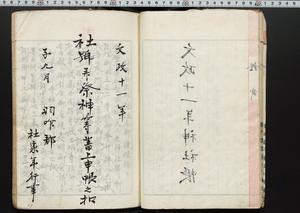 文政十一年神社帳
文政十一年
社号并祭神等書上申帳之扣
子九月
羽咋郡
社家年行事